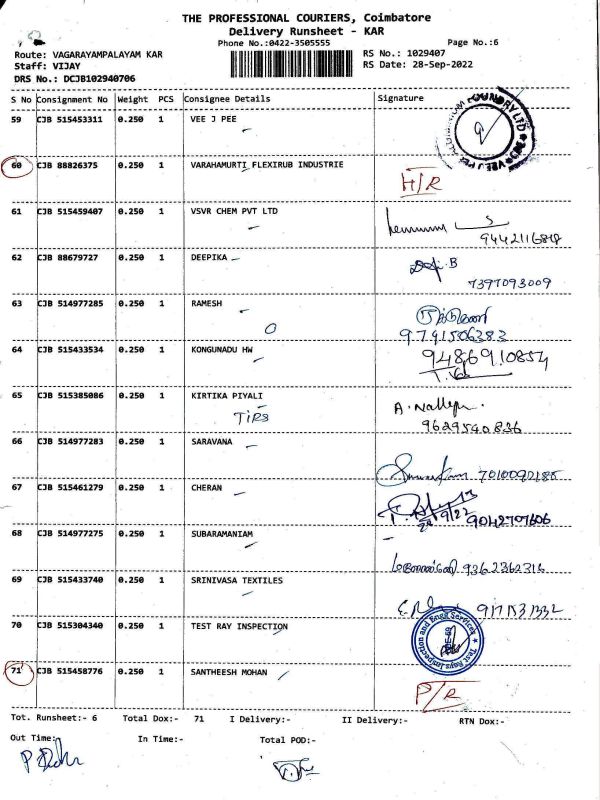 THE PROFESSIONAL COURIERS, Coimbatore
Delivery Runsheet - KAR
Phone No.:0422-3505555 Page No.:6
Route: VAGARAYAMPALAYAM KAR RS No.: 1029407
Staff: VIJAY RS Date: 28-Sep-2022
DRS No.: DCJB102940706
S No Consignment No Weight PCS Consignee Details Signature
59 CJB 515453311 0.250 1 VEE J PEE
60 CJB 88826375 0.250 1 VARAHAMURTI FLEXIRUB INDUSTRIE
H/R
61 CJB 515459407 0.250 1 VSVR CHEM PVT LTD
9442116848
62 CJB 88679727 0.250 1 DEEPIKA
7397093009
63 CJB 514977285 0.250 1 RAMESH
9791506383
64 CJB 515433534 0.250 1 KONGUNADU HW
9486910854
65 CJB 515385086 0.250 1 KIRTIKA PIYALI
TIRS
9629540836
66 CJB 514977283 0.250 1 SARAVANA
7010092185
67 CJB 515461279 0.250 1 CHERAN
9042707606
68 CJB 514977275 0.250 1 SUBARAMANIAM
9362362316
69 CJB 515433740 0.250 1 SRINIVASA TEXTILES
70 CJB 515304340 0.250 1 TEST RAY INSPECTION
Test Rays Inspection and Engg Services
71 CJB 515458776 0.250 1 SANTHEESH MOHAN
P/R
Tot. Runsheet:- 6 Total Dox:- 71 I Delivery:- II Delivery:- RTN Dox:-
Out Time:- In Time:- Total POD:-